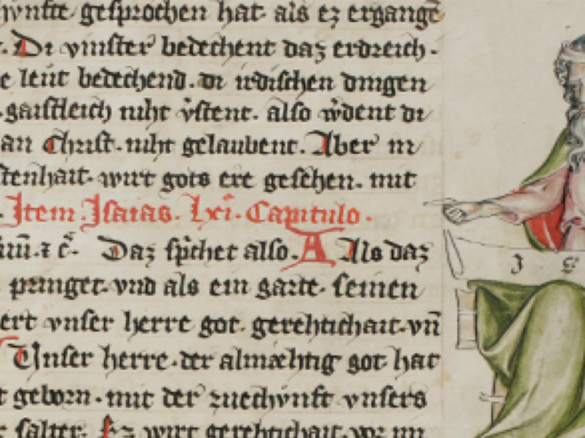 chvnfte gesprochen hat. als ez ergangē
Di vinster bedechent daz erdreich.
e leut bedechend. di irdischen dingen
gaistleich niht v̓stent. also w̓dent di
an Christ. niht gelaubent. Aber in
tenhait. wirt gots ere gesehen. mit
Item. Isaias. lxi. Capitulo.
Daz sp̄chet also. A Als daz
pringet. vnd als ein garte. seinen
ert vnser herre got. gerehtichait. vn̄
Vnser herre. der almæhtig got hat
geborn. mit der zuechvnft vnsers
salter. Ez wirt gerehtichait. vor im
I S